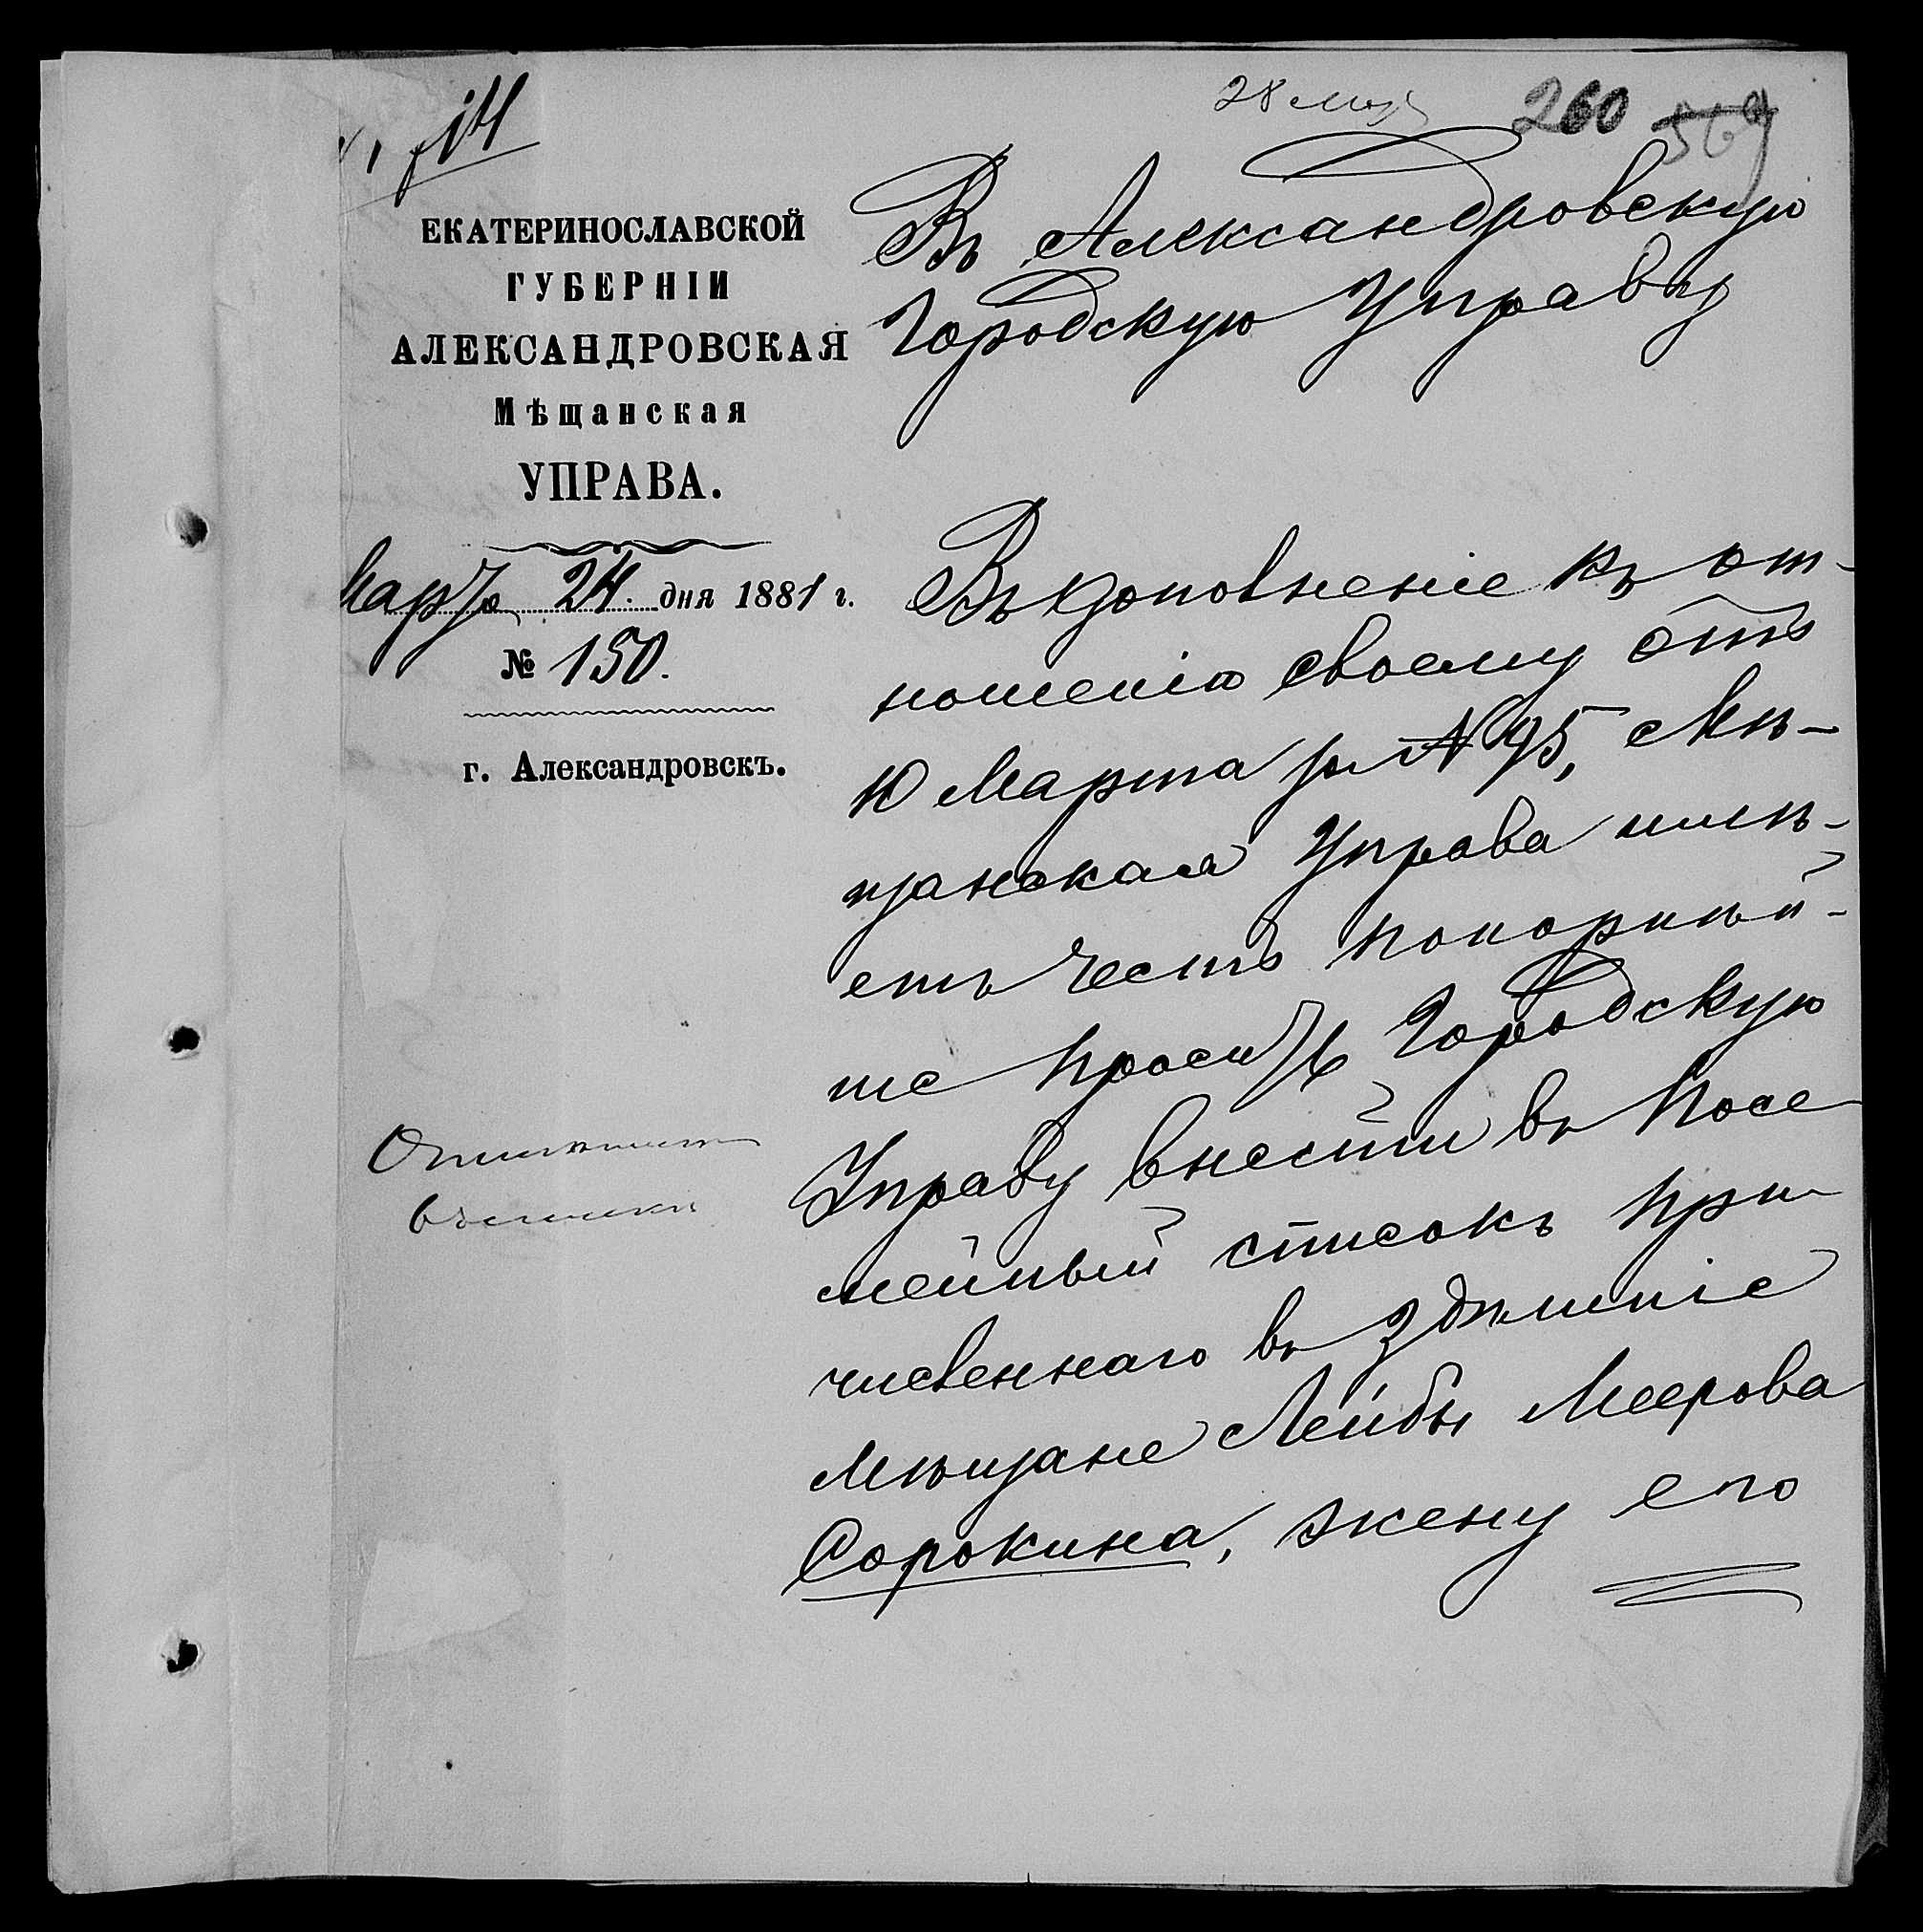 28 Мар
260 569
ЕКАТЕРИНОСЛАВСКОЙ
ГУБЕРНІИ
АЛЕКСАНДРОВСКАЯ
Мѣщанская
УПРАВА.
Марта 24. дня 1881 г.
№ 150.
г. Александровскъ.
Въ Александровскую
Городскую Управу
Въ дополненіе къ от-
ношенію своему отъ
10 Марта за № 95, Мѣ-
щанская Управа имѣ-
етъ честь покорнѣй-
ше просить Городскую
Управу внести въ посе
мейный списокъ при
численнаго въ здѣшніе
мѣщане Лейбы Меерова
Сорокина, жену его